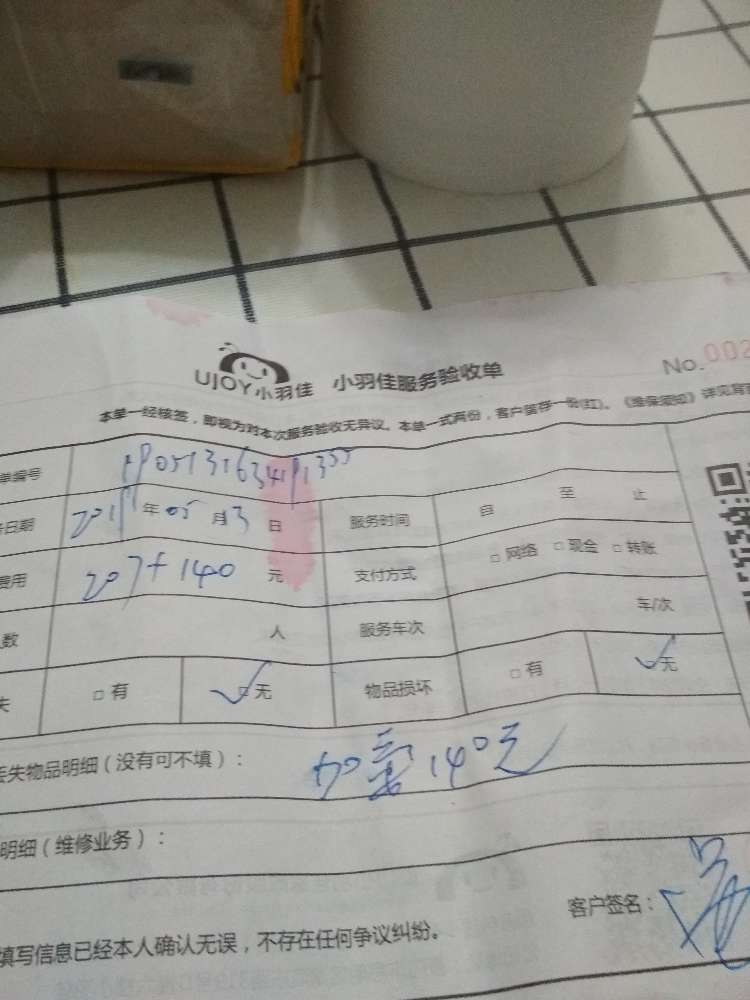 UJOY小羽佳 小羽佳服务验收单 No.002
本单一经核签，即视为对本次服务验收无异议。本单一式两份，客户留存一份(红)。《维保须知》详见背
单编号
日期 年05月13日 服务时间 自 至 止
费用 207+140元 支付方式 □网络 □现金 □转账
数 人 服务车次 车/次
失 □有 无 物品损坏 □有 无
丢失物品明细（没有可不填）： 140元
明细（维修业务）：
填写信息已经本人确认无误，不存在任何争议纠纷。 客户签名：